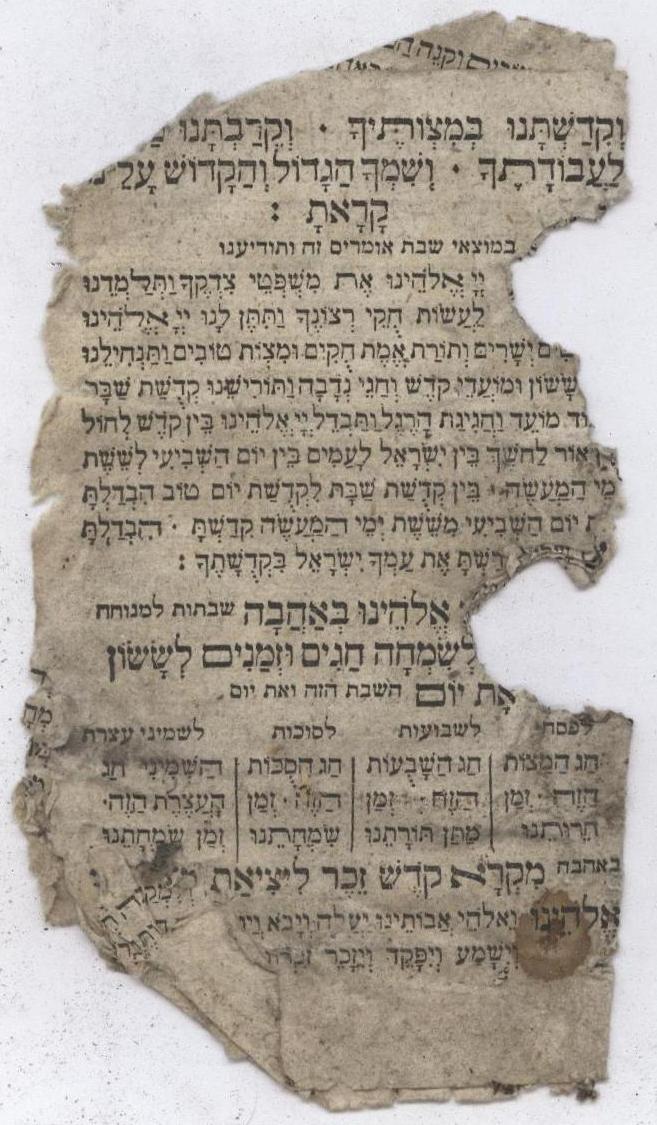 וקנה
וְקִדַּשְׁתָּנוּ בְּמִצְוֹתֶיךָ · וְקֵרַבְתָּנוּ
לַעֲבוֹדָתֶךָ · וְשִׁמְךָ הַגָּדוֹל וְהַקָּדוֹשׁ עָלֵינוּ
קָרָאתָ :
במוצאי שבת אומרים זה ותודיענו
יְיָ אֱלֹהֵינוּ אֶת מִשְׁפְּטֵי צִדְקֶךָ וַתְּלַמְּדֵנוּ
לַעֲשׂוֹת חֻקֵּי רְצוֹנֶךָ וַתִּתֶּן לָנוּ יְיָ אֱלֹהֵינוּ
יְשָׁרִים וְתוֹרַת אֱמֶת חֻקִּים וּמִצְוֹת טוֹבִים וַתַּנְחִילֵנוּ
שָׂשׂוֹן וּמוֹעֲדֵי קֹדֶשׁ וְחַגֵּי נְדָבָה וַתּוֹרִישֵׁנוּ קְדֻשַּׁת שַׁבָּת
מוֹעֵד וַחֲגִיגַת הָרֶגֶל וַתַּבְדֵּל יְיָ אֱלֹהֵינוּ בֵּין קֹדֶשׁ לְחוֹל
אוֹר לְחֹשֶׁךְ בֵּין יִשְׂרָאֵל לָעַמִּים בֵּין יוֹם הַשְּׁבִיעִי לְשֵׁשֶׁת
הַמַּעֲשֶׂה · בֵּין קְדֻשַּׁת שַׁבָּת לִקְדֻשַּׁת יוֹם טוֹב הִבְדַּלְתָּ
יוֹם הַשְּׁבִיעִי מִשֵּׁשֶׁת יְמֵי הַמַּעֲשֶׂה קִדַּשְׁתָּ · הִבְדַּלְתָּ
אֶת עַמְּךָ יִשְׂרָאֵל בִּקְדֻשָּׁתֶךָ :
אֱלֹהֵינוּ בְּאַהֲבָה שבתות למנוחה
לְשִׂמְחָה חַגִּים וּזְמַנִּים לְשָׂשׂוֹן
אֶת יוֹם השבת הזה ואת יום
לפסח לשבועות לסוכות לשמיני עצרת
חַג הַמַּצּוֹת חַג הַשָּׁבֻעוֹת חַג הַסֻּכּוֹת הַשְּׁמִינִי חַג
הַזֶּה · זְמַן הַזֶּה · זְמַן הַזֶּה · זְמַן הָעֲצֶרֶת הַזֶּה·
חֵרוּתֵנוּ מַתַּן תּוֹרָתֵנוּ שִׂמְחָתֵנוּ זְמַן שִׂמְחָתֵנוּ
באהבה מִקְרָא קֹדֶשׁ זֵכֶר לִיצִיאַת
אֱלֹהֵינוּ וֵאלֹהֵי אֲבוֹתֵינוּ יַעֲלֶה וְיָבֹא
וְיִשָּׁמַע וְיִפָּקֵד וְיִזָּכֵר